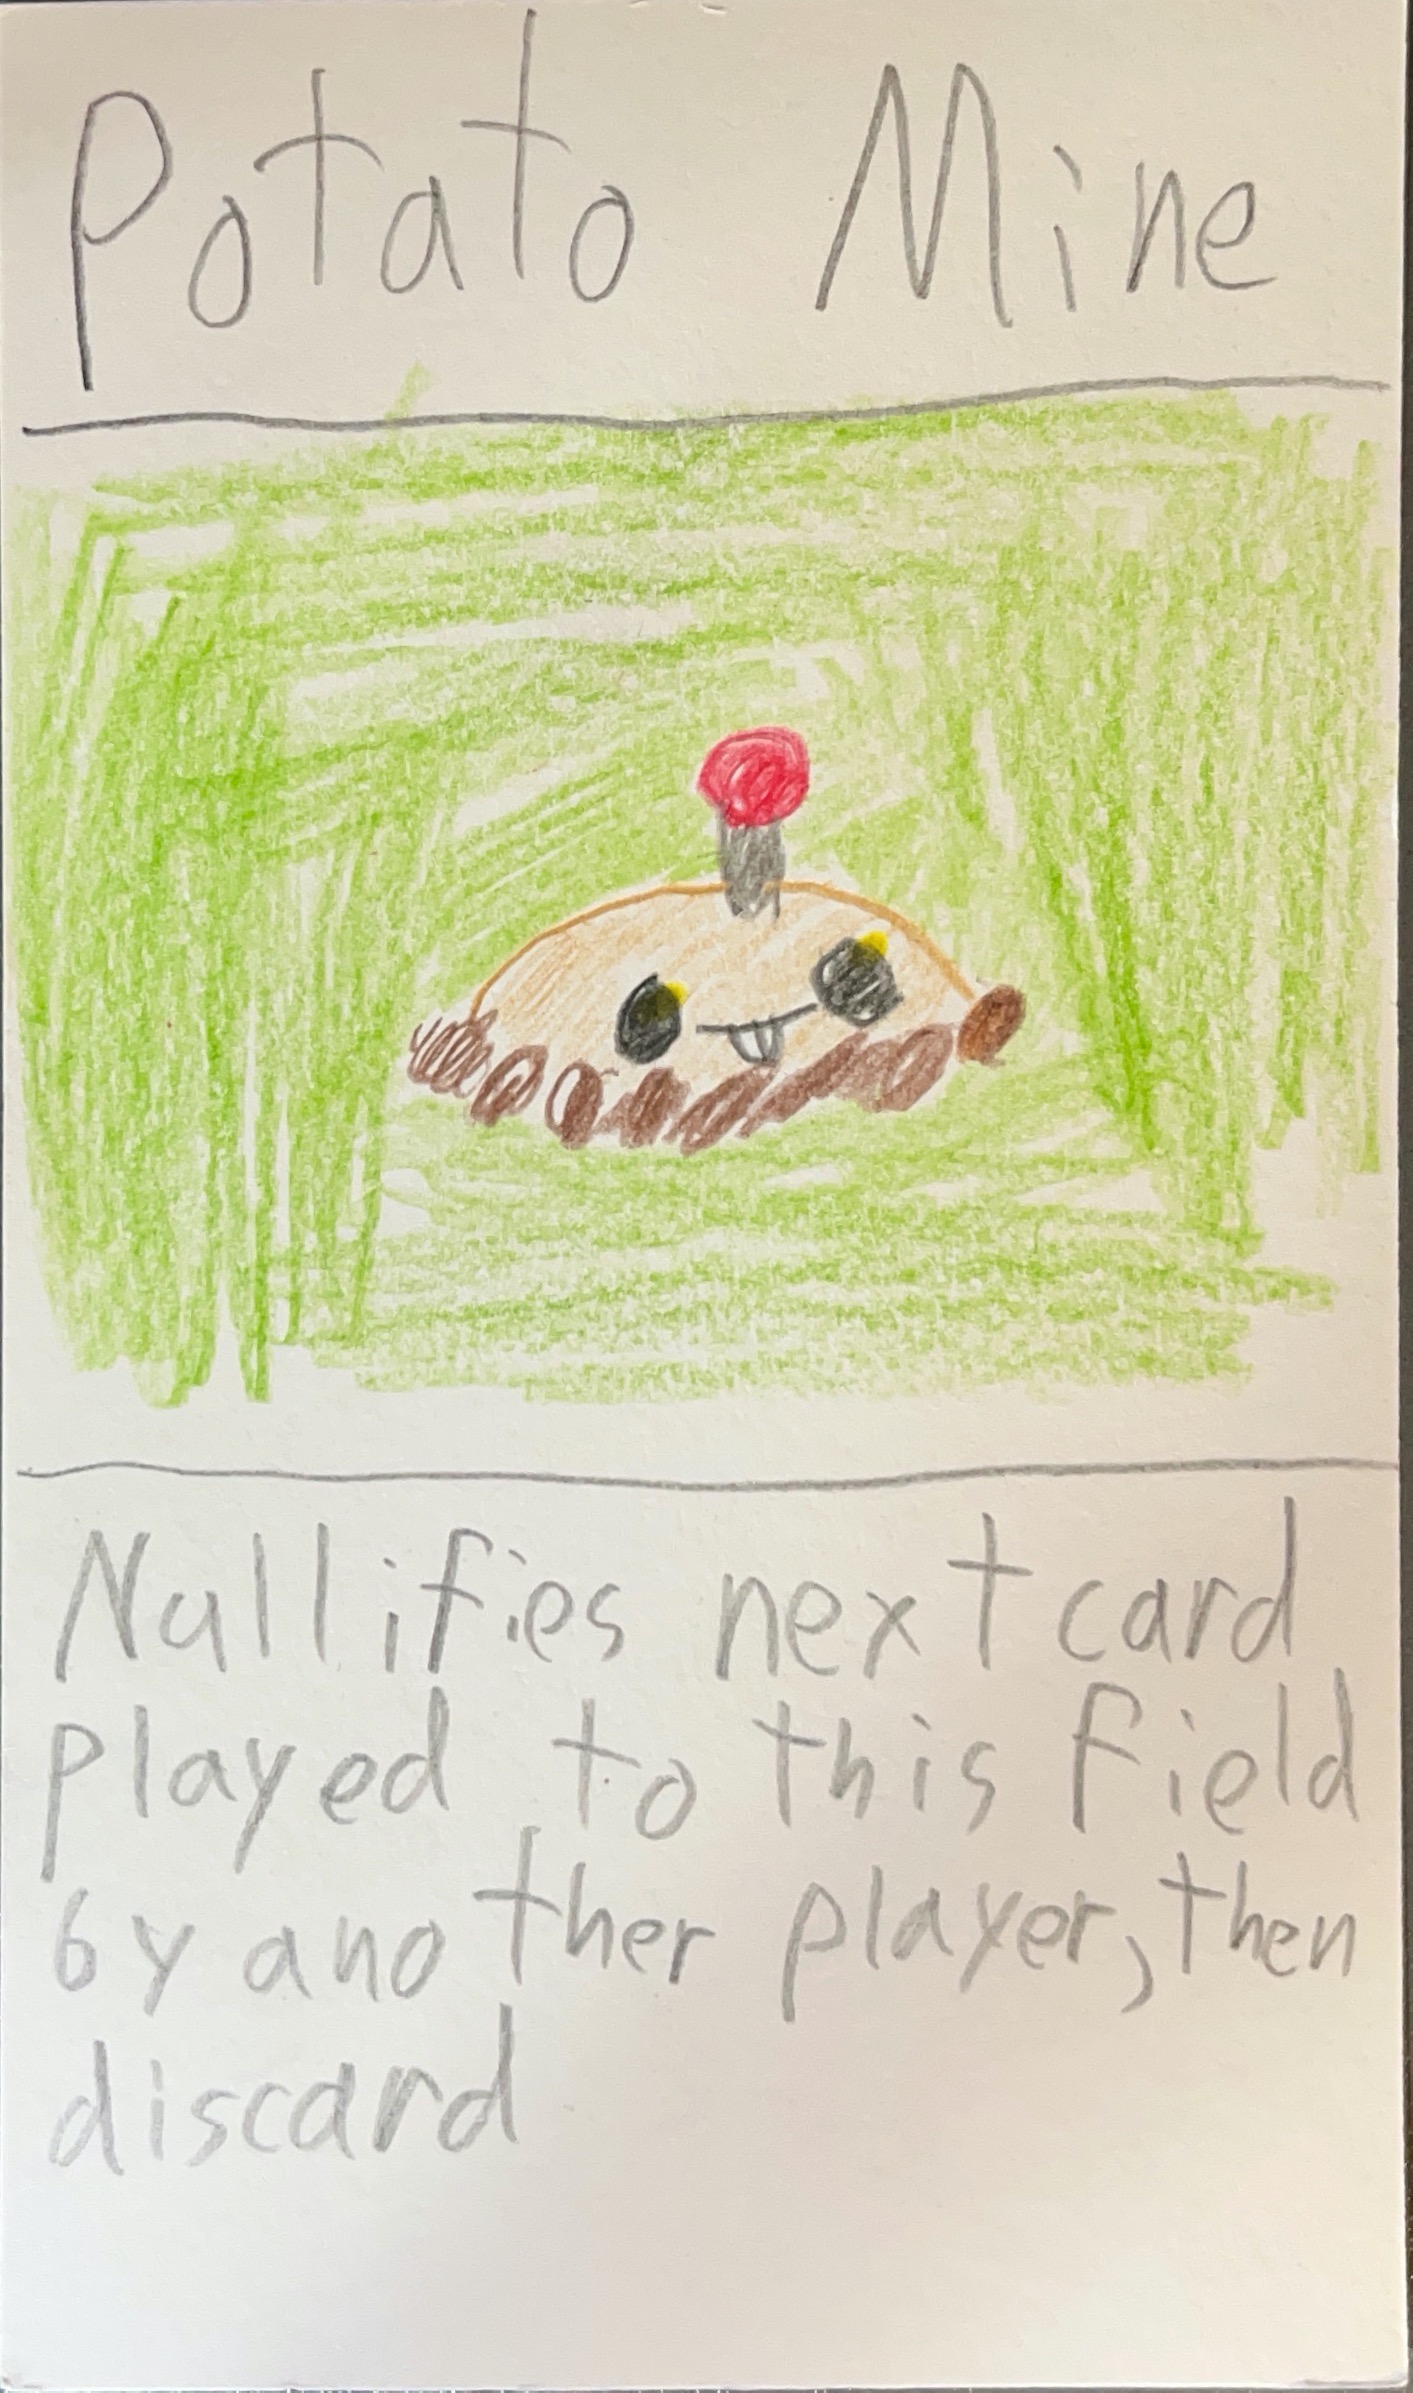 Potato Mine
Nullifies next card
played to this field
by another player, then
discard